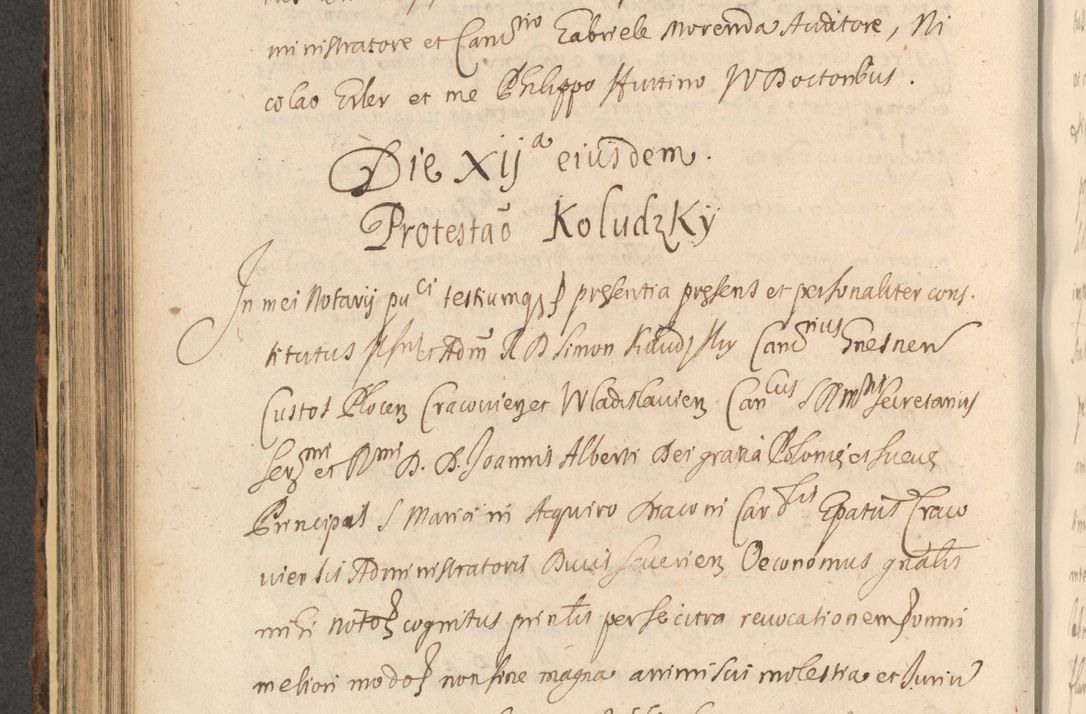 ministratore et Can^rio Gabriele Morenda Auditore, Ni
colao Erler et me Philippo Huttino V Doctoribus.
Die XIJ^a eiusdem.
Protestaõ KoludzKy
In mei Notarij pu^ci testiumq3 praesentia praesens et personaliter cons-
titutus Adm̃ R D Simon Kan^rius Gnesnen
Custos Plocen Cracovien et Wladislavien Can^cus S R M^tis Secretarius
Ser^mi et R^mi D. D. Joannis Alberti Dei gratia Poloniae et Sueciae
Principis S Mariae in Aquiro Diaconi Car^lis Epatus Craco
viensis Administratoris Ducis Severien Oeconomus gnãlis
mihi notoq3 cognitus principalis per se citra revocationem omni
meliori modo non sine magna animi sui molestia et Jurium